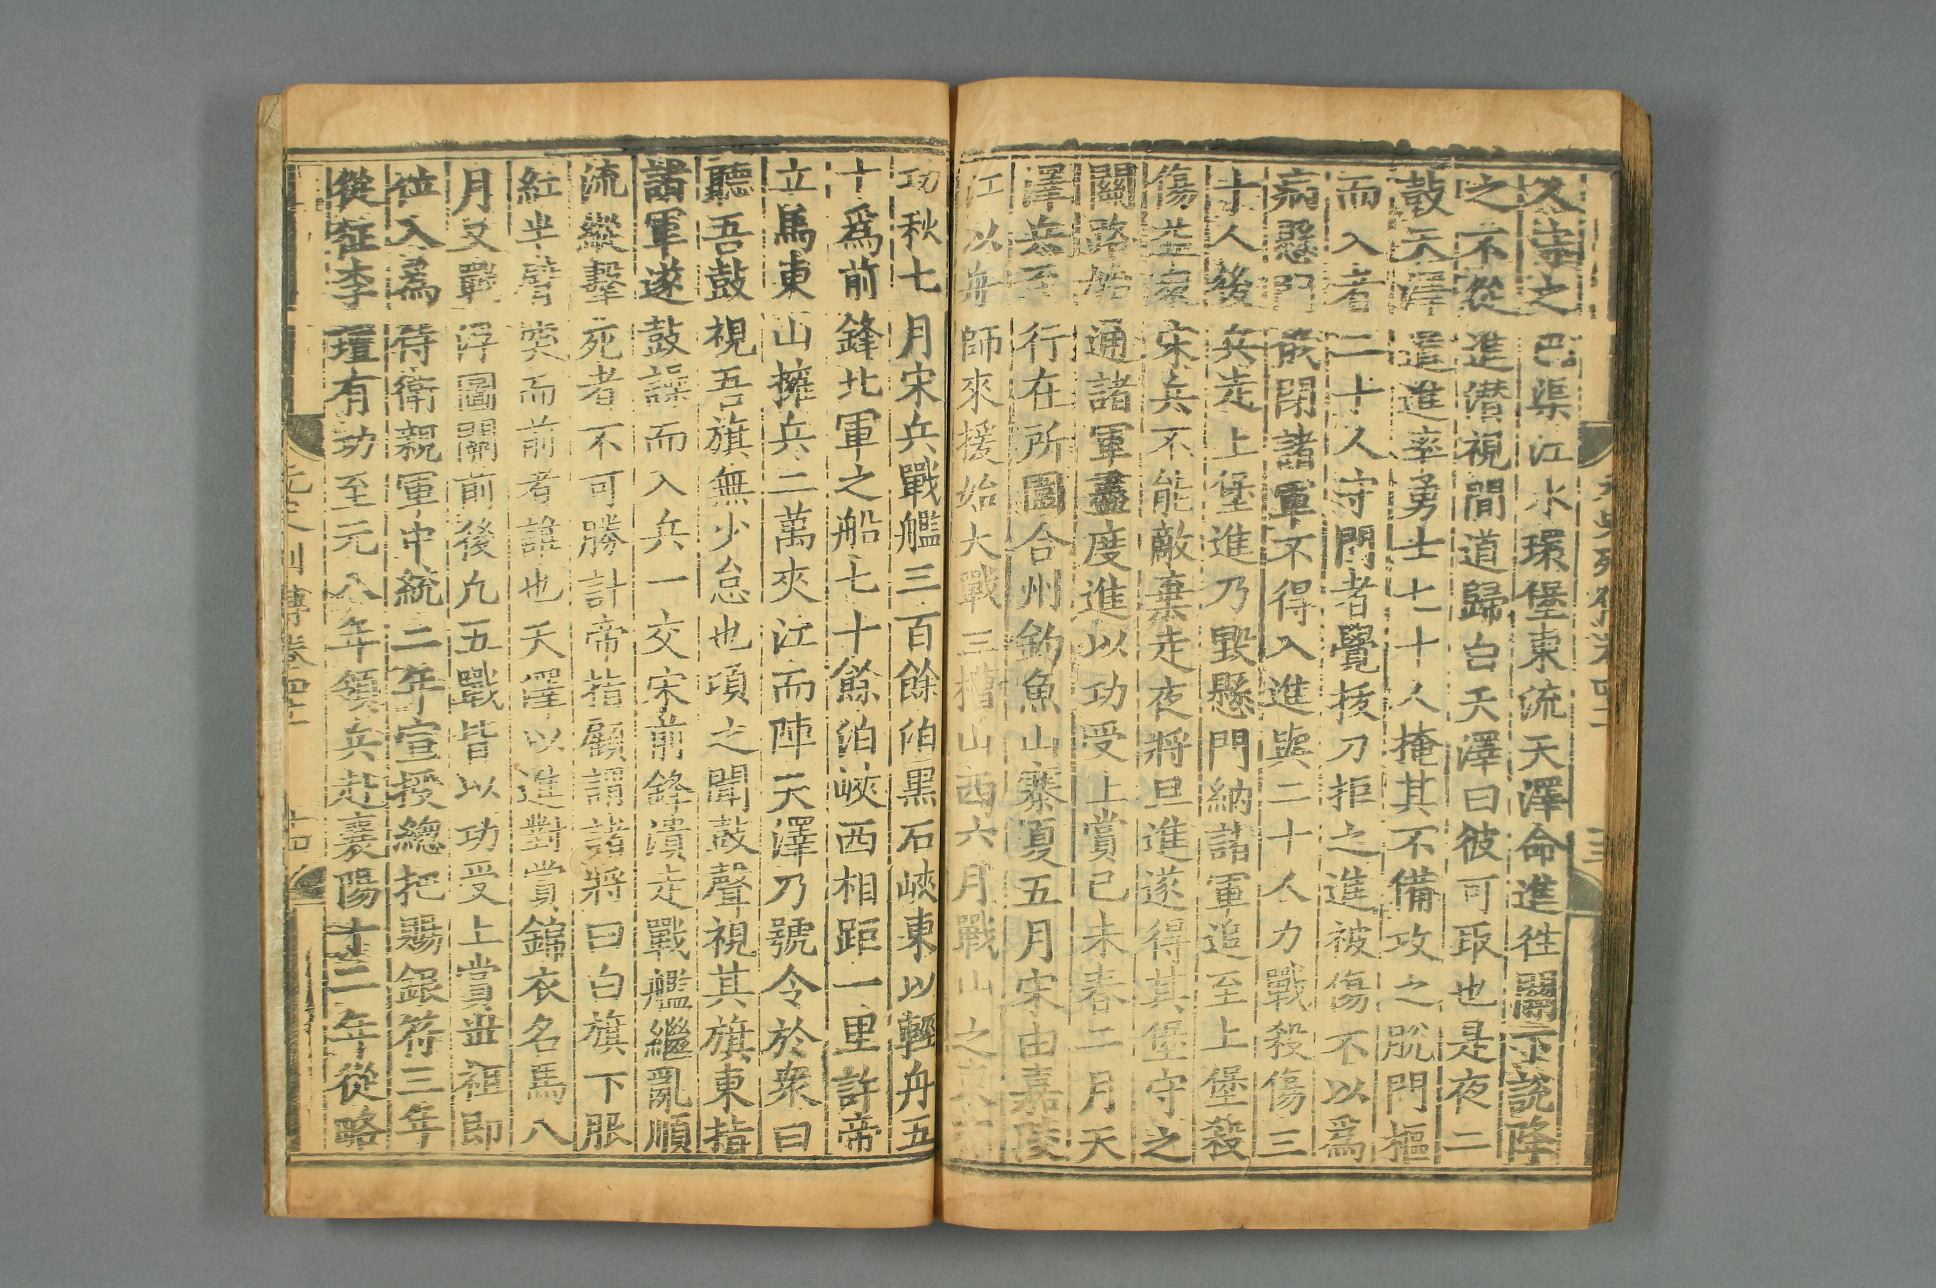 久守之巴渠江水環堡東流天澤命進往關下說降
之不從進潜視間道歸白天澤曰彼可取也是夜二
鼓天澤遣進率勇士七十人掩其不備攻之脫門樞
而入者二十人守門者覺拔刀拒之進被傷不以爲
病懸門俄閉諸軍不得入進與二十人力戰殺傷三
十人後兵走上堡進乃毀懸門納諸軍追至上堡殺
傷益衆宋兵不能敵棄走夜將旦進遂得其堡守之
關路始通諸軍盡度進以功受上賞己未春二月天
澤兵至行在所圍合州釣魚山寨夏五月宋由嘉陵
江以舟師來援始大戰三槽山西六月戰山之東有
功秋七月宋兵戰艦三百餘泊黑石峽東以輕舟五
十爲前鋒北軍之船七十餘泊峽西相距一里許帝
立馬東山擁兵二萬夾江而陣天澤乃號令於衆曰
聽吾鼓視吾旗無少怠也頃之聞鼓聲視其旗東指
諸軍遂鼓譟而入兵一交宋前鋒潰走戰艦繼亂順
流縱擊死者不可勝計帝指顧謂諸將曰白旗下服
紅半臂突而前者誰也天澤以進對賞錦衣名馬八
月又戰浮圖關前後凢五戰皆以功受上賞世祖即
位入爲侍衛親軍中統二年宣授總把賜銀符三年
從征李璮有功至元八年領兵赴襄陽十二年從略
元史列傳卷四十一
十四